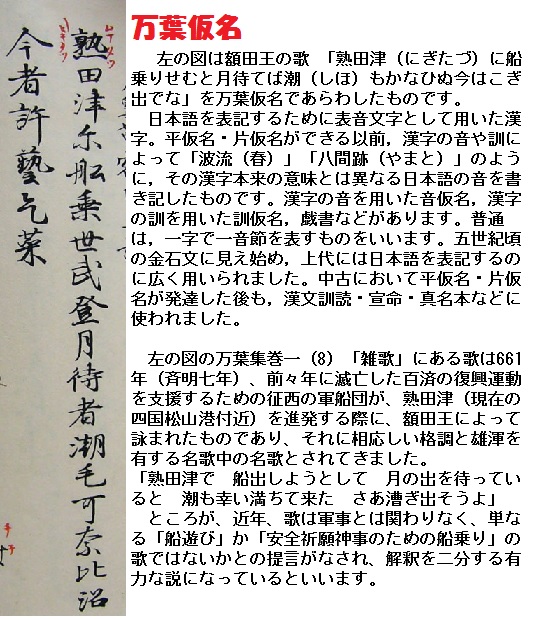 万葉仮名
左の図は額田王の歌 「熟田津（にぎたづ）に船
乗りせむと月待てば潮（しほ）もかなひぬ今はこぎ
出でな」を万葉仮名であらわしたものです。
日本語を表記するために表音文字として用いた漢
字。平仮名・片仮名ができる以前，漢字の音や訓に
よって「波流（春）」「八間跡（やまと）」のよう
に，その漢字本来の意味とは異なる日本語の音を書
き記したものです。漢字の音を用いた音仮名，漢字
の訓を用いた訓仮名，戯書などがあります。普通
は，一字で一音節を表すものをいいます。五世紀頃
の金石文に見え始め，上代には日本語を表記するの
に広く用いられました。中古において平仮名・片仮
名が発達した後も，漢文訓読・宣命・真名本などに
使われました。
左の図の万葉集巻一（8）「雑歌」にある歌は661
年（斉明七年）、前々年に滅亡した百済の復興運動
を支援するための征西の軍船団が、熟田津（現在の
四国松山港付近）を進発する際に、額田王によって
詠まれたものであり、それに相応しい格調と雄渾を
有する名歌中の名歌とされてきました。
「熟田津で　船出しようとして　月の出を待ってい
ると　潮も幸い満ちて来た　さあ漕ぎ出そうよ」
ところが、近年、歌は軍事とは関わりなく、単な
る「船遊び」か「安全祈願神事のための船乗り」の
歌ではないかとの提言がなされ、解釈を二分する有
力な説になっているといいます。
熟田津尓船乗世武登月待者潮毛可奈比沼
今者許藝乞菜